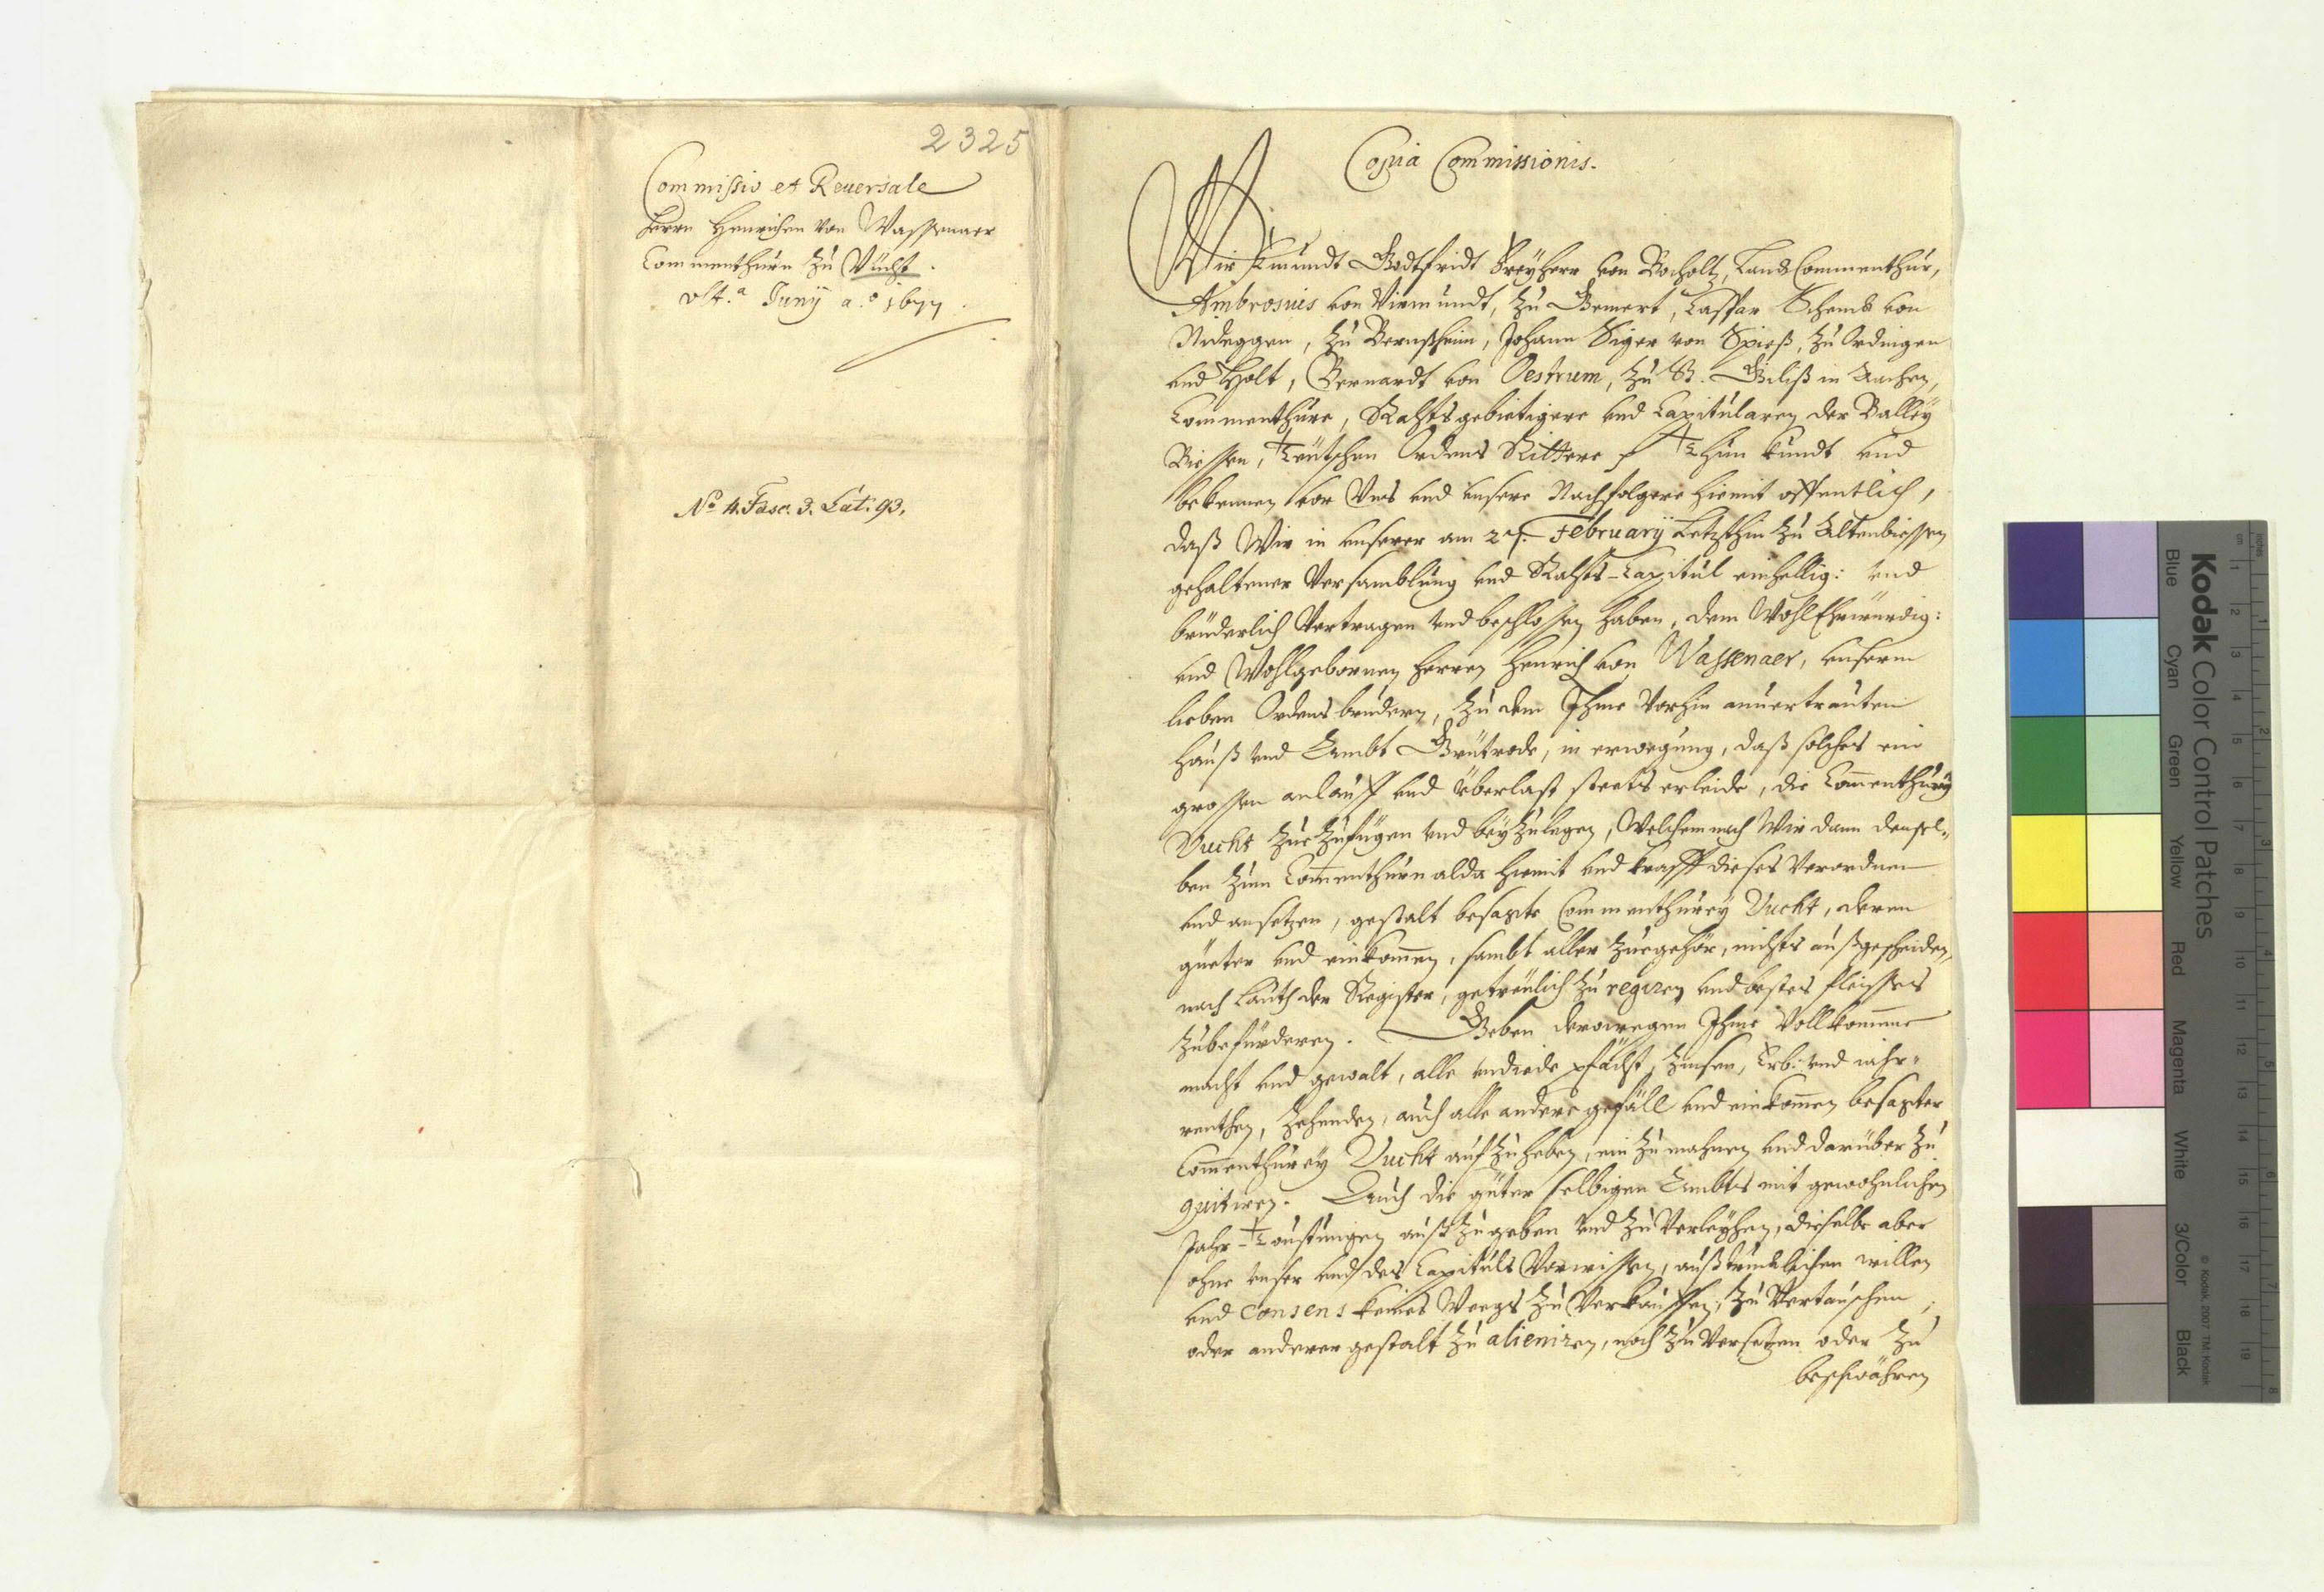 2325
Commissio et Reuersale
Herrn Henrichen von Wassenaer
Commenthurn zu Vucht.
ult.ª Junÿ a.º 1677.
Nº 4. Fasc. 3. Lat. 93.
Copia Commissionis.
Wir Edmundt Godtfridt Freÿherr von Bocholtz, LandCommenthur,
Ambrosius von Virmundt, zu Gemert, Caspar Schenck von
Nideggen, zu Bernßheim, Johann Siger von Spieß, zu Ordingen
und Holt, Bernardt von Oestrum, zu St. Giliß in Aachen,
Commenthure, Rahtsgebietigere und Capitularen der Balleÿ
Biessen, Teutschen Ordens Rittere p Thun kundt und
bekennen vor Uns und unsere Nachfolgere hiemit offentlich,
daß Wir in unserer am 27. Februarÿ Letzthin zu Altenbiessen
gehaltener Versamblung und Rahts-Capitul einhellig: und
brüderlich Vertragen und beschlossen haben, dem WohlEhrwürdig:
und Wohlgebornen Herren Henrich von Wassenaer, unserm
lieben Ordensbrudern, zu dem Ihme Vorhin anvertrauten
Hauß und Ambt Grutrode, in erwegung, daß solches ein
grossen anlauff und überlast steets erleide, die Com̄enthureÿ
Vucht zue zufügen und beÿzulegen, Welchem nach Wir dann densel-
ben zum Com̄enthurn alda hiemit und krafft dieses Verordnen
und ansetzen, gestalt besagte Commenthureÿ Vucht, deren
güeter und einkom̄en, sambt aller zuegehör, nichts außgescheiden,
nach Lauth der Register, getreulich zu regiren und bestes fleisses
zubefürderen. Geben derowegen Ihme Vollkommene
macht und gewalt, alle und iede pfächt, Zinsen, Erb: und iahr-
renthen, Zehenden, auch alle andere gefäll und einkom̄en besagter
Com̄enthureÿ Vucht auf zu heben, ein zu mahnen und darüber zu
quitiren. Auch die güter selbigen Ambts mit gewohnlichen
Jahr- auß zu geben und zu Verleÿhen, dieselbe aber
ohne unser und des Capituls Vorwissen, außtrucklichen willen
und consens keines Weegs zu Verkauffen, zu Vertauschen,
oder anderer gestalt zu alieniren, noch zu Versetzen oder zu
beschwähren
Kodak Color Control Patches
Blue Cyan Green Yellow Red Magenta White 3/Color Black
© Kodak, 2007 TM: Kodak